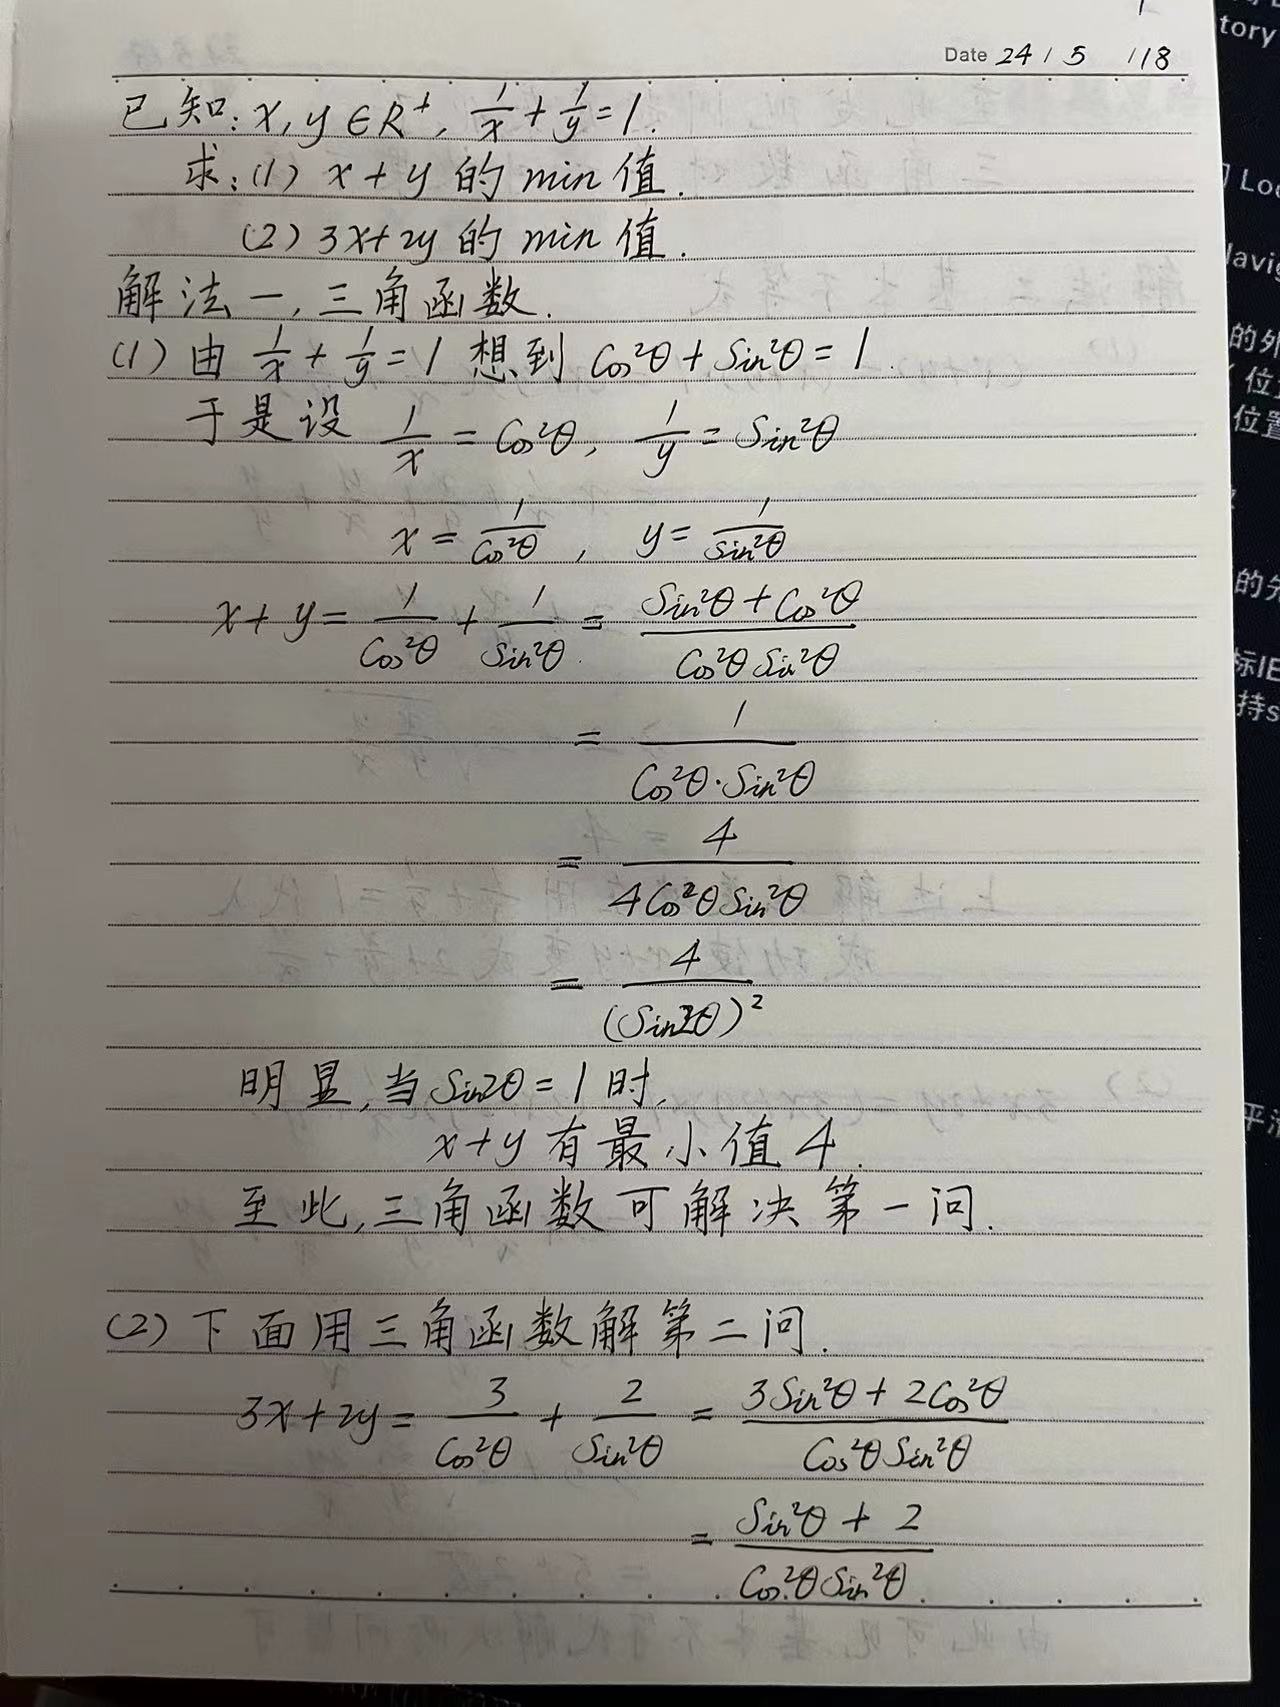 Date 24 / 5 / 18
已知: x, y ∈ R⁺, 1/x + 1/y = 1.
求: (1) x + y 的 min 值.
(2) 3x+2y 的 min 值.
解法一, 三角函数.
(1) 由 1/x + 1/y = 1 想到 Cos²θ + Sin²θ = 1.
于是设 1/x = Cos²θ, 1/y = Sin²θ
x = 1/Cos²θ, y = 1/Sin²θ
x + y = 1/Cos²θ + 1/Sin²θ = (Sin²θ + Cos²θ)/(Cos²θ Sin²θ)
= 1/(Cos²θ·Sin²θ)
= 4/(4Cos²θ Sin²θ)
= 4/(Sin2θ)²
明显, 当 Sin2θ = 1 时,
x+y 有最小值 4.
至此, 三角函数可解决第一问.
(2) 下面用三角函数解第二问.
3x+2y = 3/Cos²θ + 2/Sin²θ = (3Sin²θ + 2Cos²θ)/(Cos²θ Sin²θ)
= (Sin²θ + 2)/(Cos²θ Sin²θ)
tory
的外
位置
的分
标IE
持s